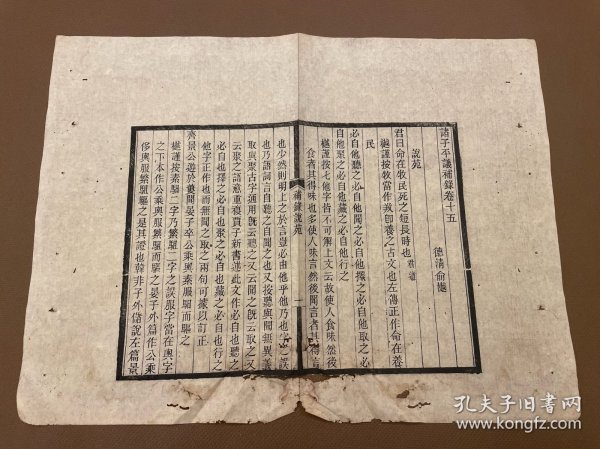 諸子平議補錄卷十五
德清俞樾
說苑
君曰命在牧民死之短長時也 君道
樾謹按牧當作敄卽養之古文也左傳正作命在養
民
必自他聽之必自他聞之必自他擇之必自他取之必
自他聚之必自他藏之必自他行之
樾謹按七他字皆不可解上文云故使人食味然後
食者其得味也多使人味言然後聞言者其得言
也少然則明上之於言豈必由他乎他乃也字之誤
也乃語詞言自聽之自聞之也又按聽與聞無異義
取與聚古字通用旣云聽之又云聞之旣云取之又
云聚之語意重複賈子新書述此文作必自也聽之
必自也擇之必自也聚之必自也藏之必自也行之
他字正作也而無聞之取之兩句可據以訂正
齊景公遊於蔞聞晏子卒公乘輿素服驅而驅之
樾謹按素驅二字乃繁駔二字之誤服字當在輿字
之下本作公乘輿服繁駔驅之晏子外篇作公乘
侈輿服繁駔驅之是其證也韓非子外儲說左篇景
補錄說苑
一
孔夫子旧书网
www.kongfz.com